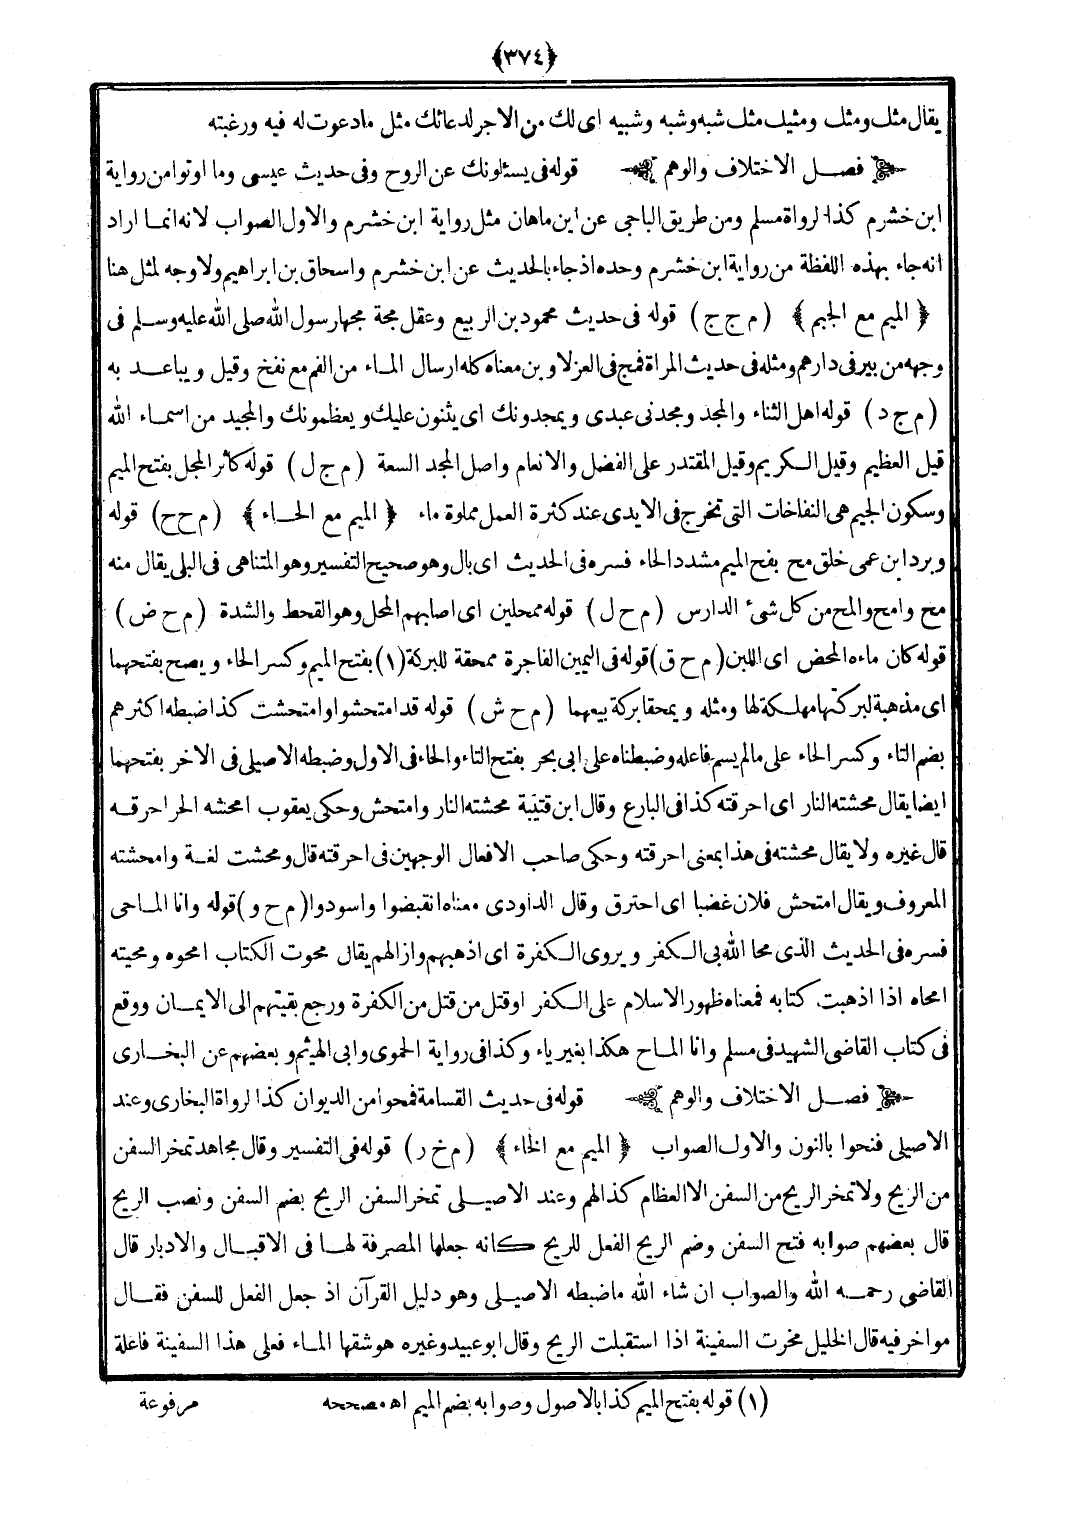 ﴿٣٧٤﴾
يقال مثل ومثل ومثيل مثل شبه وشبه وشبيه اى لك من الاجر لدعائك مثل مادعوت له فيه ورغبته
فصل الاختلاف والوهم قوله فى يسئلونك عن الروح وفى حديث عيسى وما اوتوا من رواية
ابن خشرم كذا لرواة مسلم ومن طريق الباجى عن ابن ماهان مثل رواية ابن خشرم والاول الصواب لانه انما اراد
انه جاء بهذه اللفظة من رواية ابن خشرم وحده اذ جاء بالحديث عن ابن خشرم واسحاق بن ابراهيم ولاوجه لمثل هنا
﴿ الميم مع الجيم ﴾ (م ج ج) قوله فى حديث محمود بن الربيع وعقل مجة مجها رسول الله صلى الله عليه وسلم فى
وجهه من بير فى دارهم ومثله فى حديث المراة فمج فى العزلاوين معناه كله ارسال الماء من الفم مع نفخ وقيل ويباعد به
(م ج د) قوله اهل الثناء والمجد ومجدنى عبدى ويمجدونك اى يثنون عليك ويعظمونك والمجيد من اسماء الله
قيل العظيم وقيل الكريم وقيل المقتدر على الفضل والانعام واصل المجد السعة (م ج ل) قوله كاثر المجل بفتح الميم
وسكون الجيم هى النفاخات التى تخرج فى الايدى عند كثرة العمل مملوة ماء ﴿ الميم مع الحاء ﴾ (م ح ح) قوله
وبرد ابن عمى خلق مح بفح الميم مشدد الحاء فسره فى الحديث اى بال وهو صحيح التفسير وهو المتناهى فى البلى يقال منه
مح وامح والمح من كل شىء الدارس (م ح ل) قوله ممحلين اى اصابهم المحل وهو القحط والشدة (م ح ض)
قوله كان ماءه المحض اى اللبن (م ح ق) قوله فى اليمين الفاجرة ممحقة للبركة (١) بفتح الميم وكسر الحاء ويصح بفتحهما
اى مذهبة لبركتها مهلكة لها ومثله ويمحقا بركة بيعهما (م ح ش) قوله قد امتحشوا وامتحشت كذا ضبطه اكثرهم
بضم التاء وكسر الحاء على مالم يسم فاعله وضبطناه على ابى بحر بفتح التاء والحاء فى الاول وضبطه الاصيلى فى الاخر بفتحهما
ايضا يقال محشته النار اى احرقته كذا فى البارع وقال ابن قتيبة محشته النار وامتحش وحكى يعقوب امحشه الحر احرقه
قال غيره ولايقال محشته فى هذا بمعنى احرقته وحكى صاحب الافعال الوجهين فى احرقته قال ومحشت لغة وامحشته
المعروف ويقال امتحش فلان غضبا اى احترق وقال الداودى معناه انقبضوا واسودوا (م ح و) قوله وانا الماحى
فسره فى الحديث الذى محا الله بى الكفر ويروى الكفرة اى اذهبهم وازالهم يقال محوت الكتاب امحوه ومحيته
امحاه اذا اذهبت كتابه فمعناه ظهور الاسلام على الكفر اوقتل من قتل من الكفرة ورجع بقيتهم الى الايمان ووقع
فى كتاب القاضى الشهيد فى مسلم وانا الماح هكذا بغير ياء وكذا فى رواية الحموى وابى الهيثم وبعضهم عن البخارى
فصل الاختلاف والوهم قوله فى حديث القسامة فمحوا من الديوان كذا لرواة البخارى وعند
الاصيلى فنحوا بالنون والاول الصواب ﴿ الميم مع الخاء ﴾ (م خ ر) قوله فى التفسير وقال مجاهد تمخر السفن
من الريح ولاتمخر الريح من السفن الا العظام كذا لهم وعند الاصيلى تمخر السفن الريح بضم السفن ونصب الريح
قال بعضهم صوابه فتح السفن وضم الريح الفعل للريح كانه جعلها المصرفة لها فى الاقبال والادبار قال
القاضى رحمه الله والصواب ان شاء الله ماضبطه الاصيلى وهو دليل القرآن اذ جعل الفعل للسفن فقال
مواخر فيه قال الخليل مخرت السفينة اذا استقبلت الريح وقال ابو عبيد وغيره هو شقها الماء فعلى هذا السفينة فاعلة
(١) قوله بفتح الميم كذا بالاصول وصوابه بضم الميم اه مصححه مرفوعة